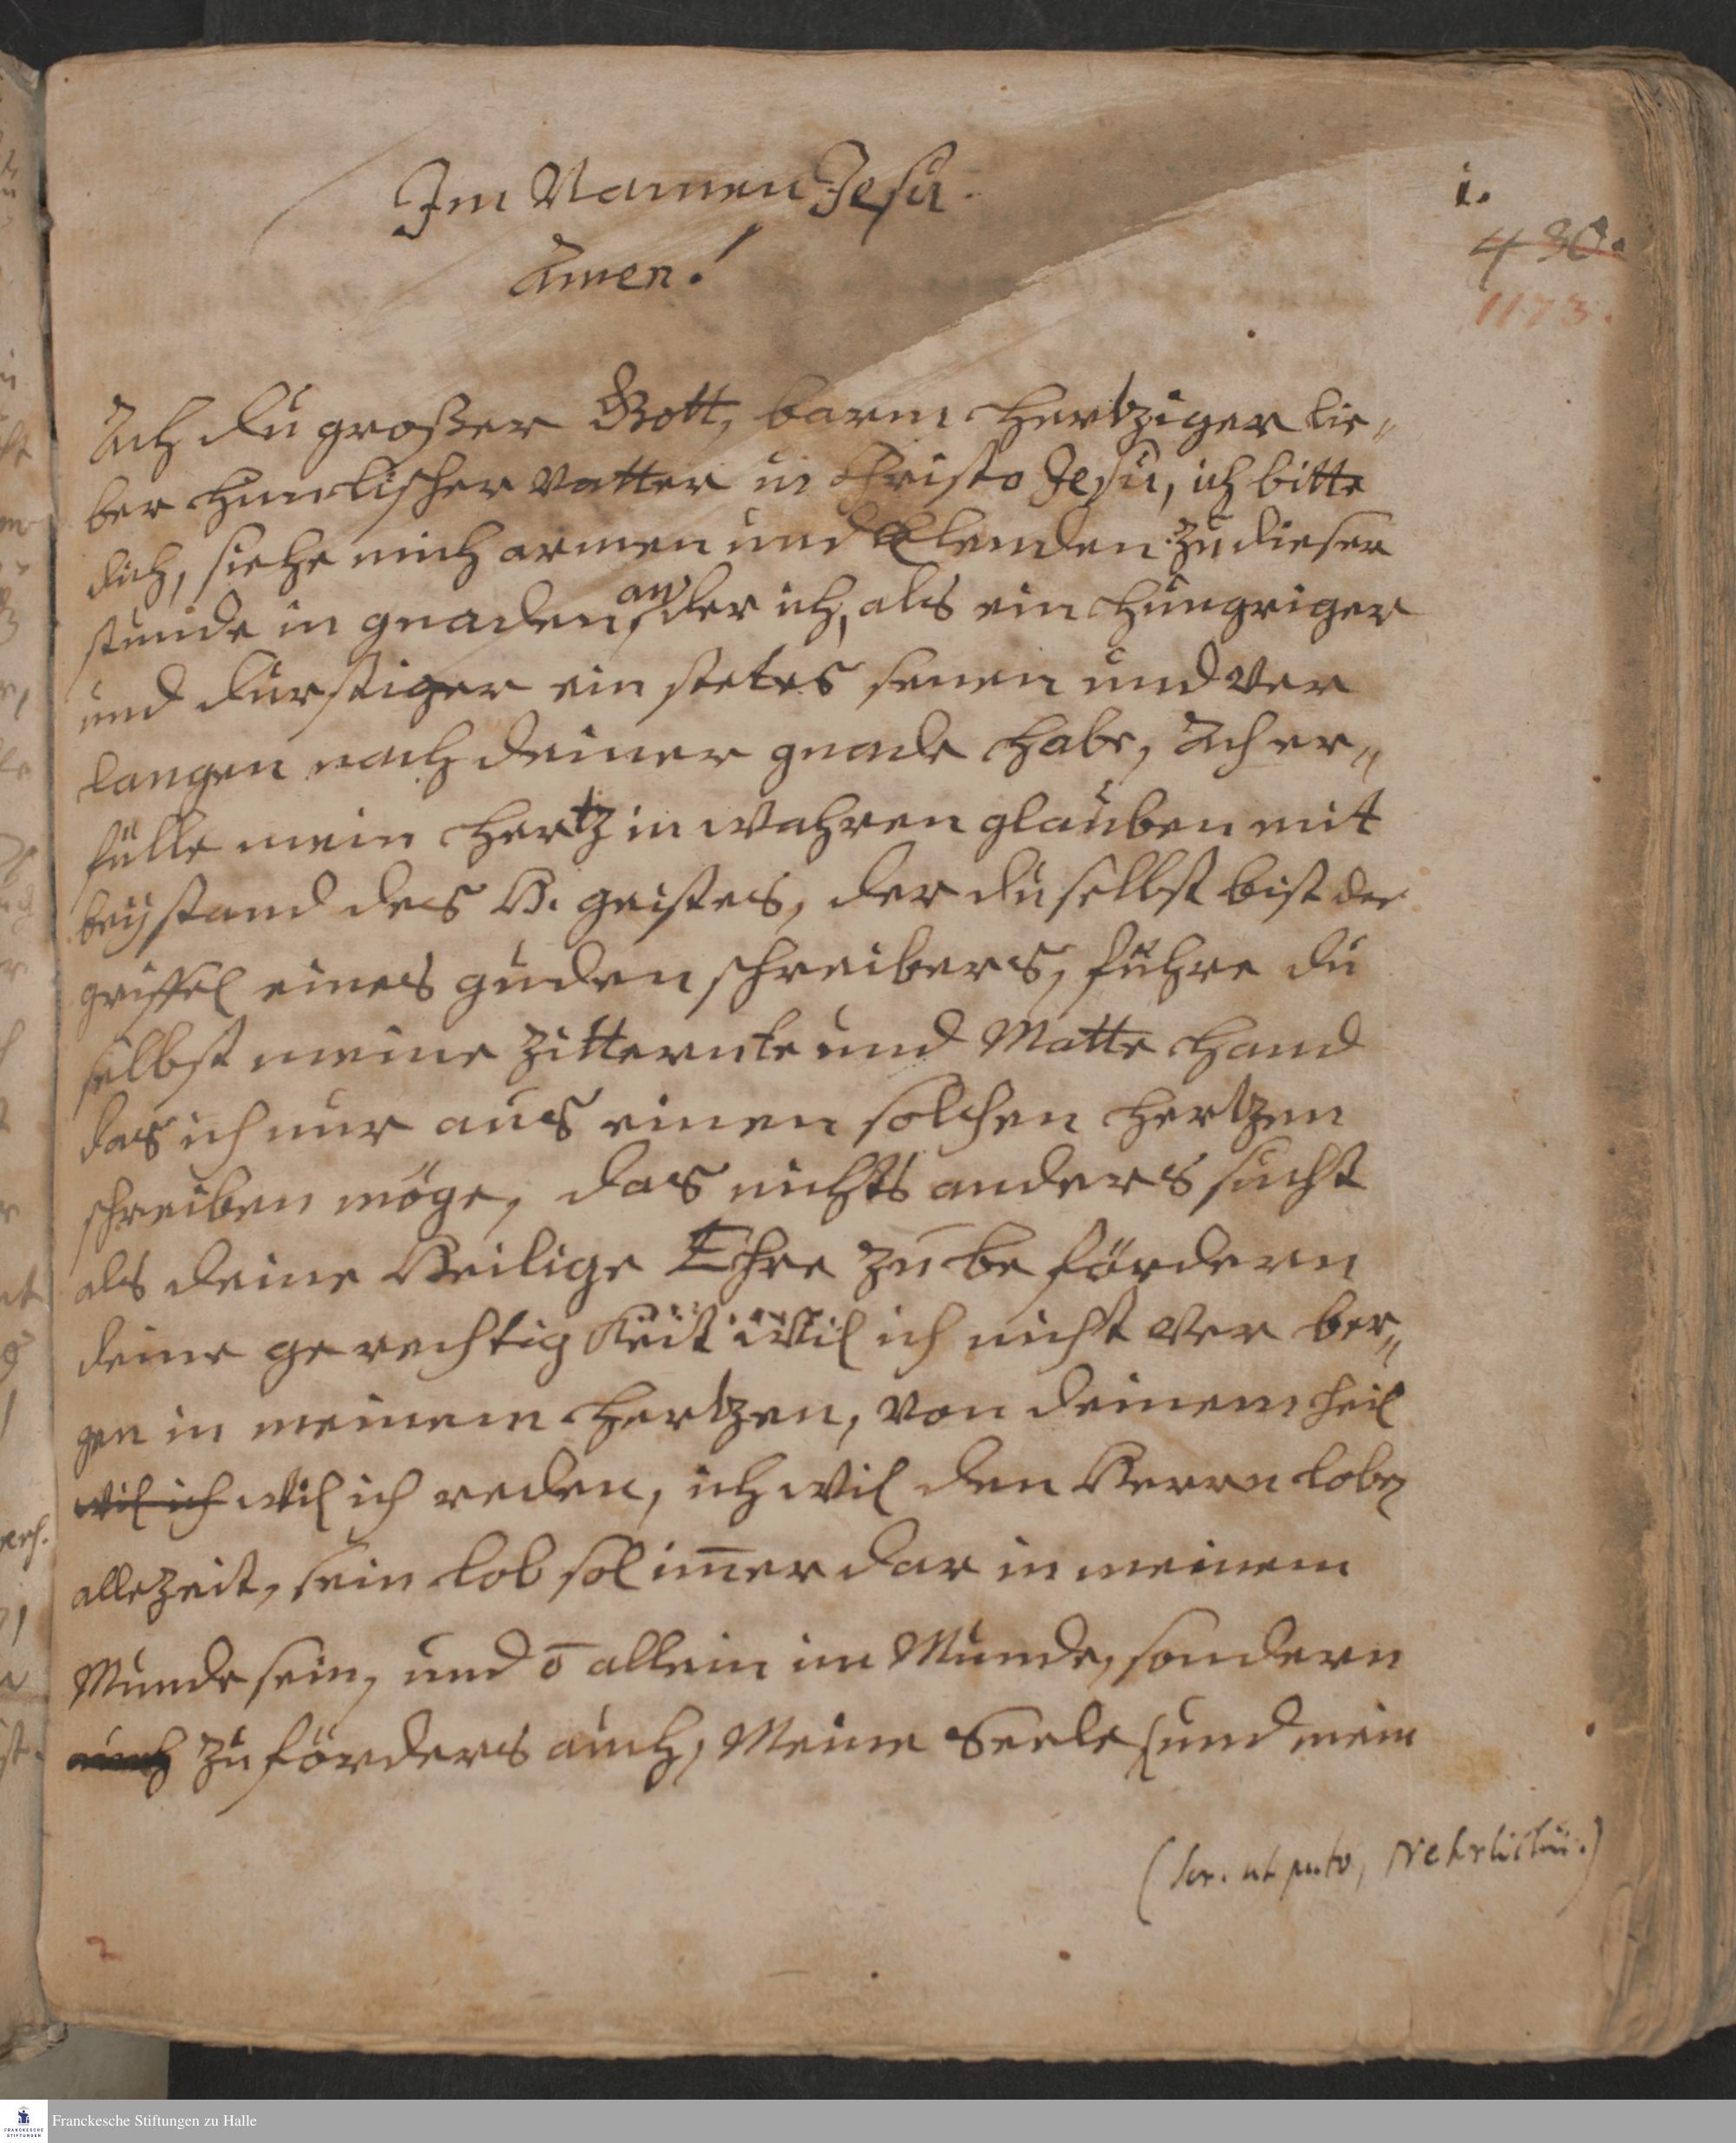 Im Namen Jesu
Amen!
1.
430.
1173.
Ach du großer Gott, barm hertziger lie„
ber himlischer Vatter in Christo Jesu, ich bitte
dich, siehe mich armen und Elenden zu dieser
stunde in gnaden an, der ich, als ein hungriger
und durstiger ein stetes senen und ver
langen nach deiner gnade habe, Ach er„
fülle mein hertz in wahren glauben mit
beystand des H. geistes, der du selbst bist der
griffel eines guden schreibers, führe du
selbst meine zitternte und Matte hand
das ich nur aus einen solchen hertzen
schreiben möge, das nichts anders sucht
als deine Heilige Ehre zu be fördern
deine gerechtig keit wil ich nicht ver ber„
gen in meinem hertzen, von deinem heil
wil ich wil ich reden, ich wil den Herrn loben
allezeit, sein lob sol im̄er dar in meinem
Munde sein, und o̅ allein im Munde, sondern
auch zuförders auch, Meine Seele und mein
(scr. ut puto, Nehrlichii.)
2
Franckesche Stiftungen zu Halle
FRANCKESCHE
STIFTUNGEN